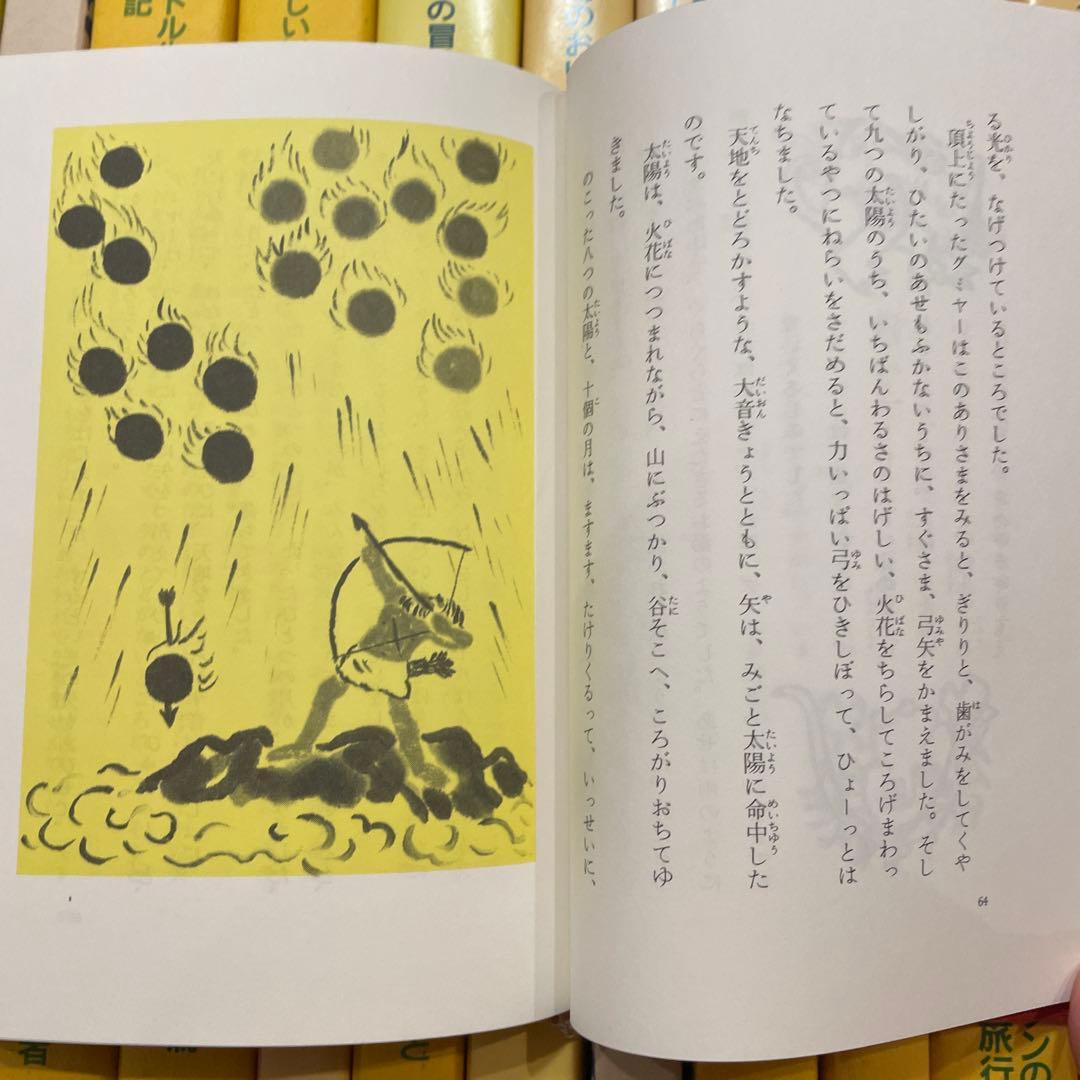 る光を、なげつけているところでした。
頂上にたったグミヤーはこのありさまをみると、ぎりりと、歯がみをしてくや
しがり、ひたいのあせもふかないうちに、すぐさま、弓矢をかまえました。そし
て九つの太陽のうち、いちばんわるさのはげしい、火花をちらしてころげまわっ
ているやつにねらいをさだめると、力いっぱい弓をひきしぼって、ひょーっとは
なちました。
天地をとどろかすような、大音きょうとともに、矢は、みごと太陽に命中した
のです。
太陽は、火花につつまれながら、山にぶつかり、谷そこへ、ころがりおちてゆ
きました。
のこった八つの太陽と、十個の月は、ますます、たけりくるって、いっせいに、
64
記
しい
の冒
のお
者
と
ンの
旅行